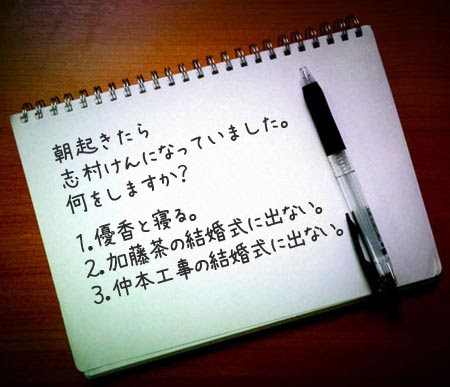 朝起きたら
志村けんになっていました。
何をしますか?
1.優香と寝る。
2.加藤茶の結婚式に出ない。
3.仲本工事の結婚式に出ない。